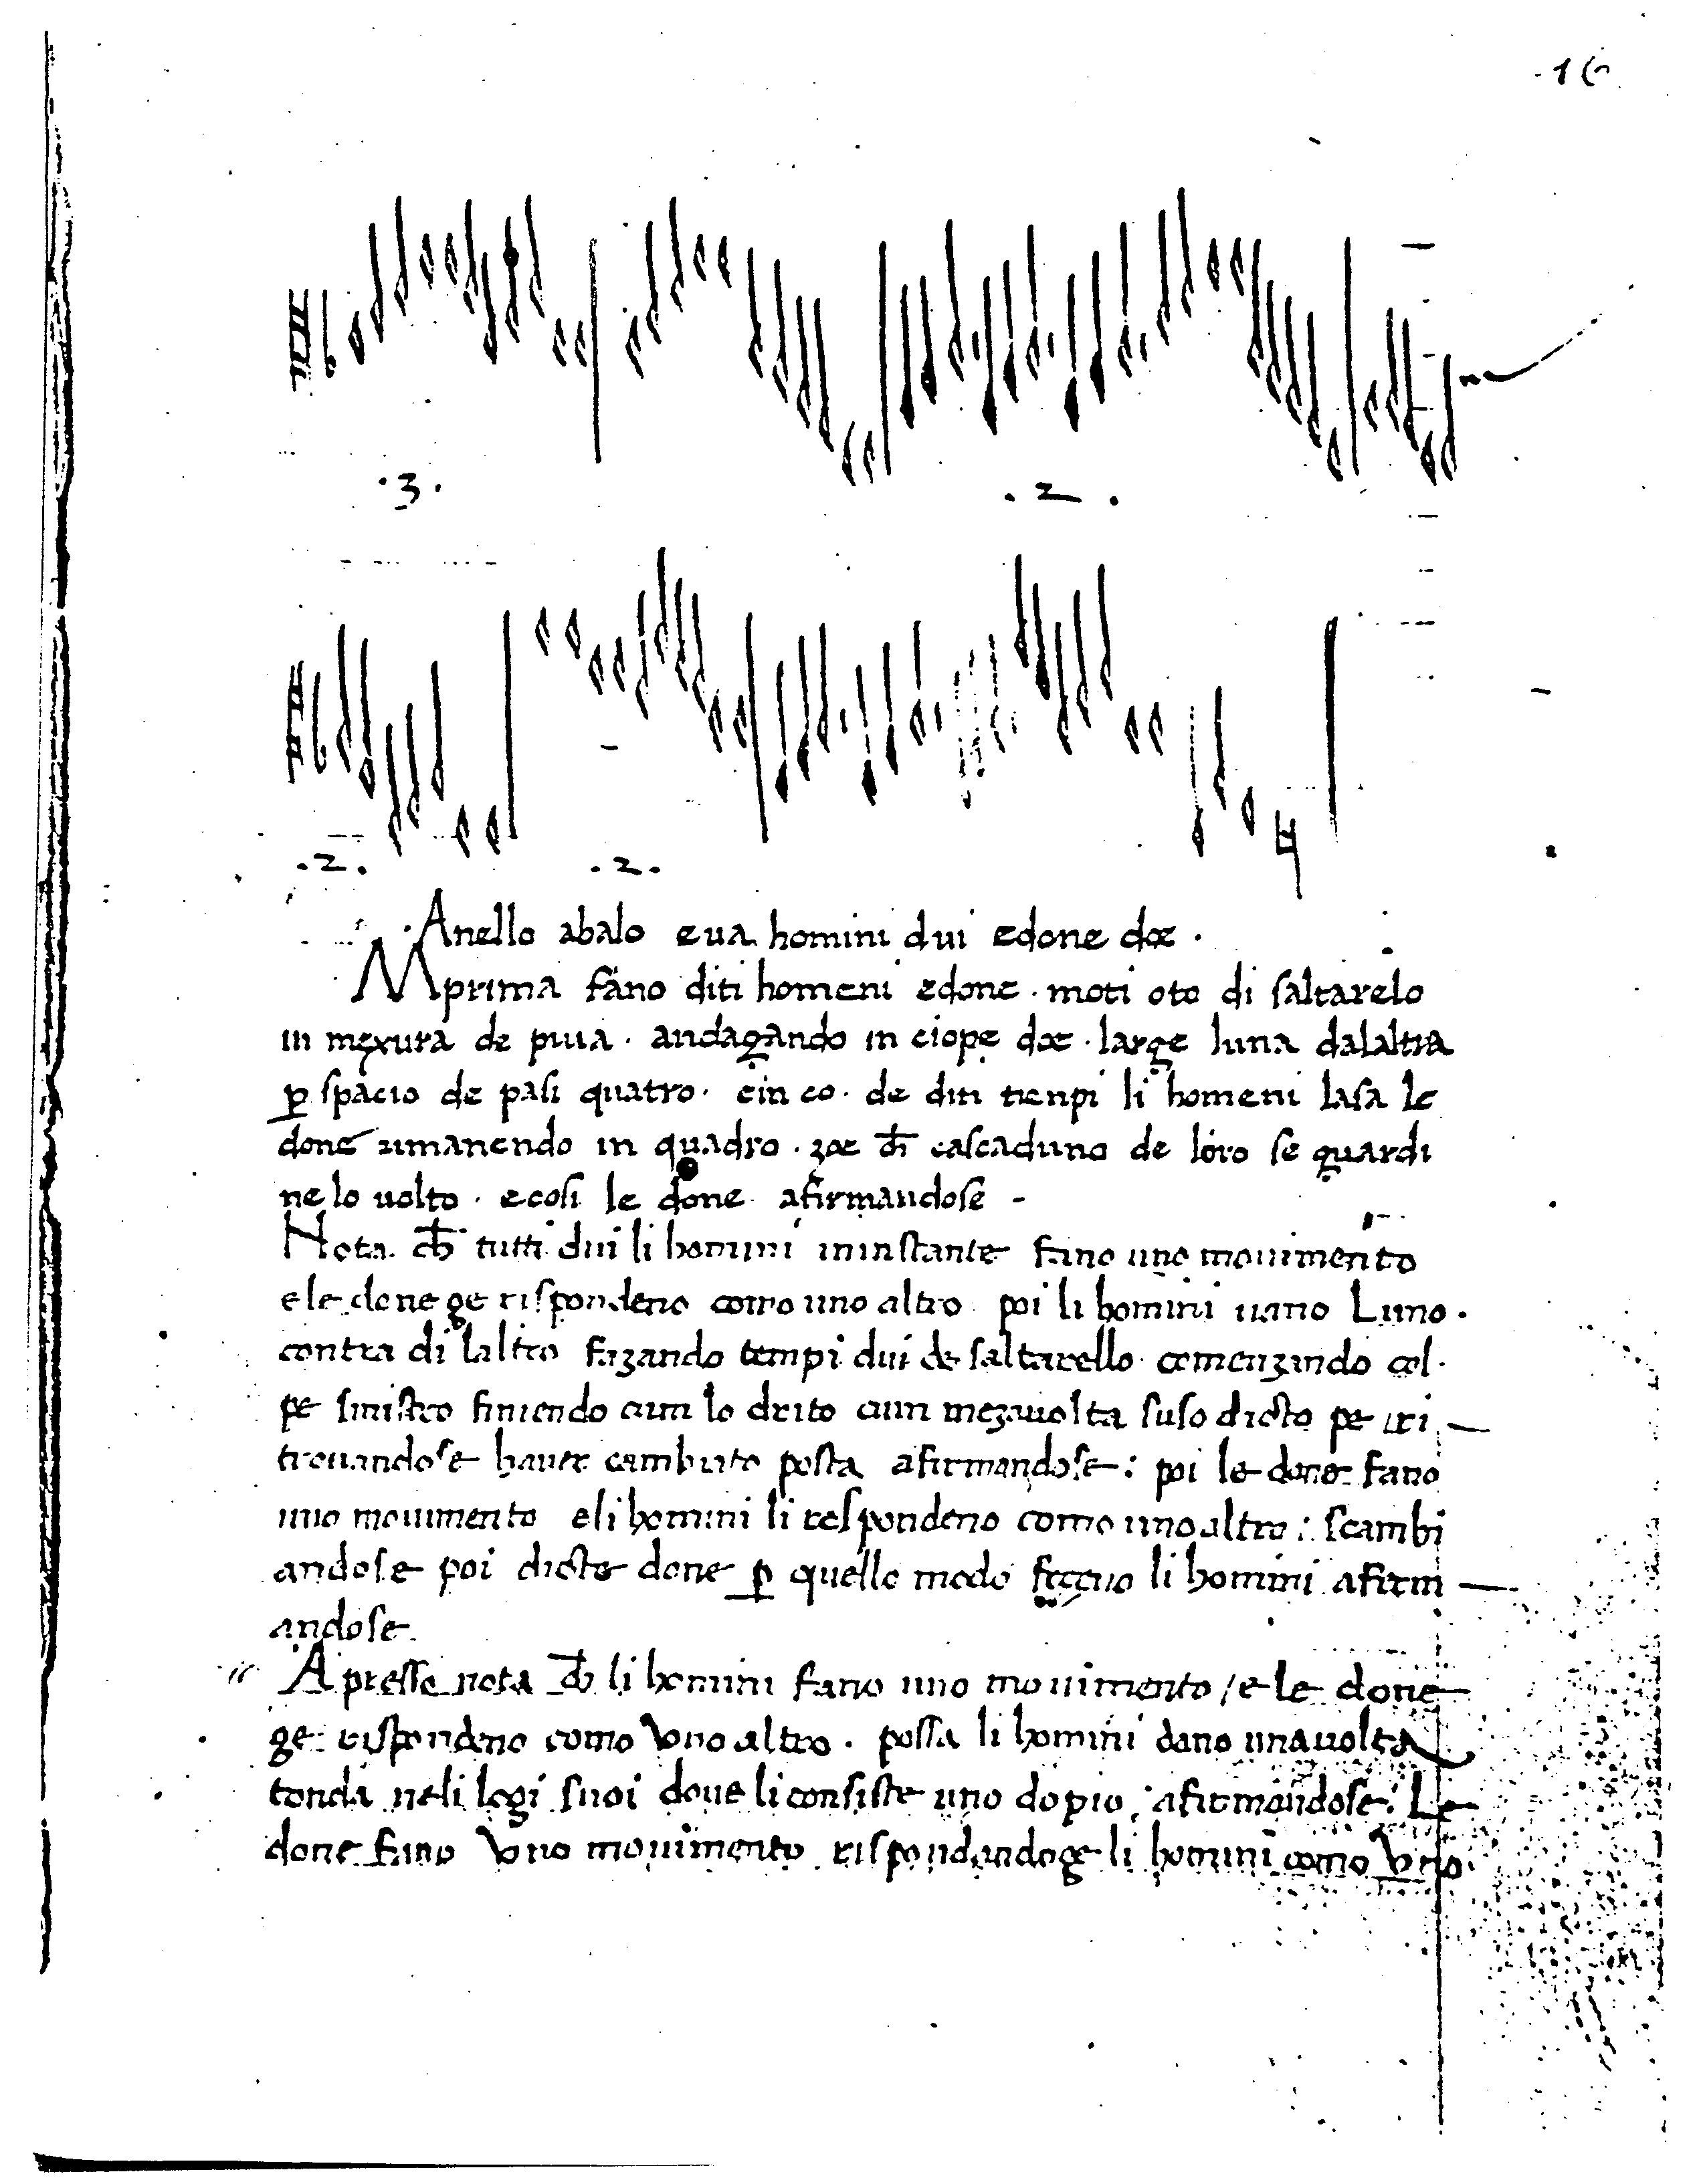 16
.3.
.2.
.2.
.2.
.Anello abalo e va homini dui e done doe .
Mprima fano diti homeni e done . moti oto di saltarelo
in mexura de piva . andagando in ciope doe . large luna dalaltra
ꝑ spacio de pasi quatro . e in co . de diti tienpi li homeni lasa le
done rimanendo in quadro . zoe ch̄ cascaduno de loro se guardi
ne lo volto . e cosi le done afirmandose -
Nota ch̄ tutti dui li homini in instante fano uno movimento
e le done ge rispondeno como uno altro poi li homini vano Luno .
contra di laltro fazando tempi dui de saltarello comenzando col .
pe sinistro finiendo cum lo drito cum mezavolta suso dicto pe dri
trovandose haver cambiato posta afirmandose : poi le done fano
uno movimento e li homini li respondeno como uno altro : scambi
andose poi dicte done ꝑ quello modo li homini afirm
andose
Apresso nota ch̄ li homini fano uno movimento / e le done
ge rispondeno como Uno altro . possa li homini dano una volta
tonda neli logi suoi dove li consiste uno dopio , afirmandose : Le
done fano Uno movimento rispondandoge li homini como Uno